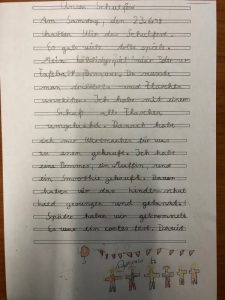 Unser Schulfest
Am Samstag, den 23.6.18
hatten Wir das Schulfest.
Es gab viele tolle spiele.
Mein lieblingsspiel war
Da musste
man dribbeln und Flaschen
umschießen. Ich habe mit einem
Schuß alle Flaschen
umgeschoßen. Danach habe
ich mir Wertmarken für
zu essen gekauft. Ich habe
eine Pommes, ein Muffin, und
ein Smoothie gekauft. Dann
haben wir das
Lied gesungen und getanzt.
Später haben wir getrommelt.
Es war ein cooles Fest. David